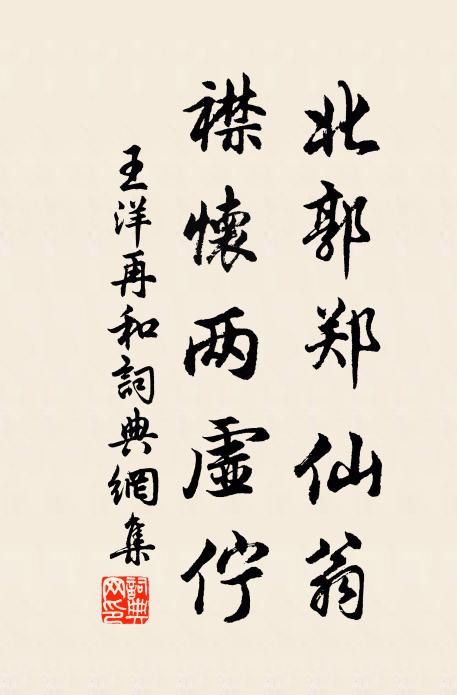 北郭郑仙翁
襟懷两虛佇
王洋再和詞典網集
詞典网印